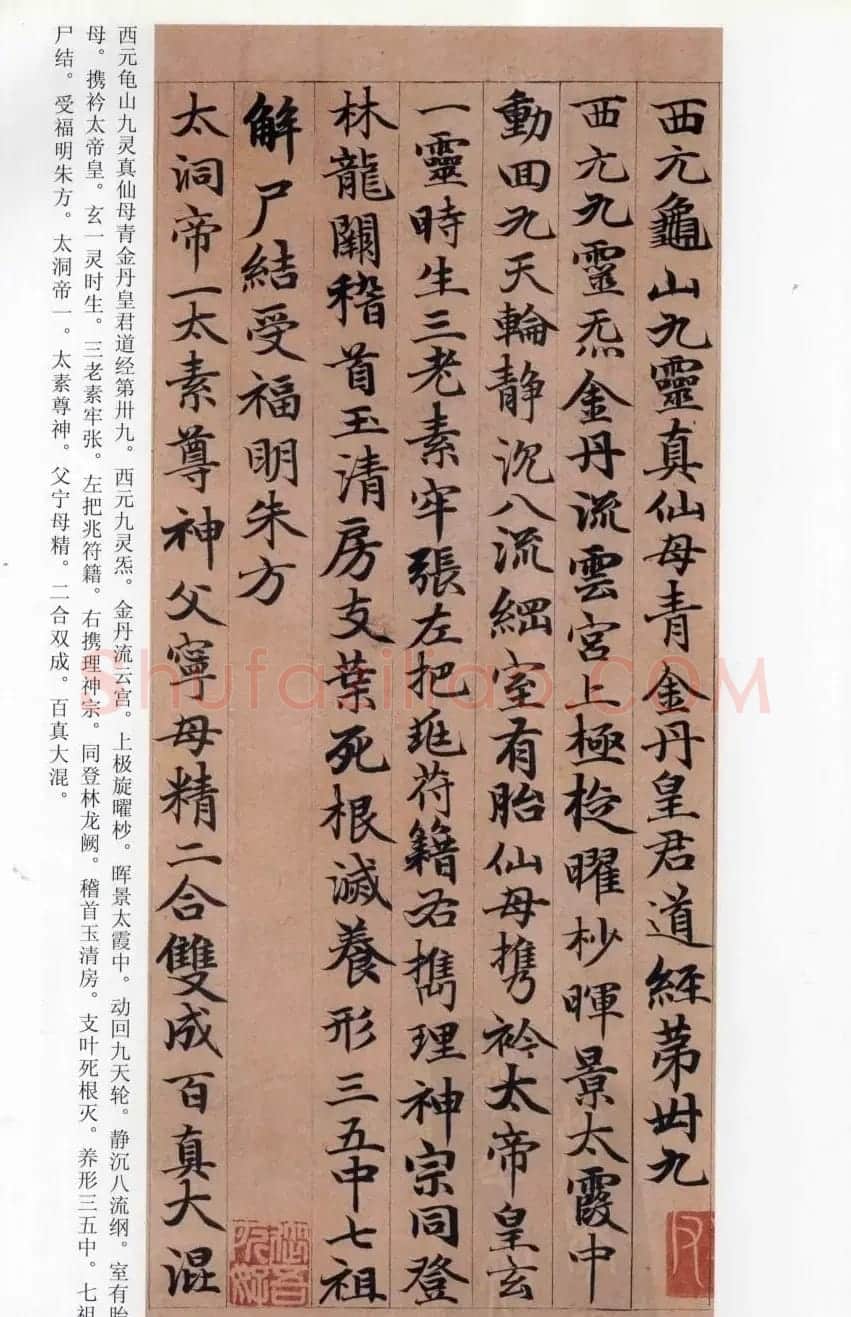 西亢龜山九靈真仙母青金丹皇君道經苐卌九
西亢九靈炁金丹流雲宮上極㨀曜杪暉景太霞中
動回九天輪静沉八流綱室有胎仙母携衿太帝皇玄
一靈時生三老素牢張左把兆苻籍右擕理神宗同登
林龍闕稽首玉清房支葉死根滅養形三五中七祖
解尸結受福明朱方
太洞帝一太素尊神父寧母精二合雙成百真大混
西元龟山九灵真仙母青金丹皇君道经第卅九。西元九灵炁。金丹流云宫。上极旋曜杪。晖景太霞中。动回九天轮。静沉八流纲。室有胎
母。携衿太帝皇。玄一灵时生。三老素牢张。左把兆符籍。右携理神宗。同登林龙阙。稽首玉清房。支叶死根灭。养形三五中。七祖
尸结。受福明朱方。太洞帝一。太素尊神。父宁母精。二合双成。百真大混。
Shufaziliao.COM